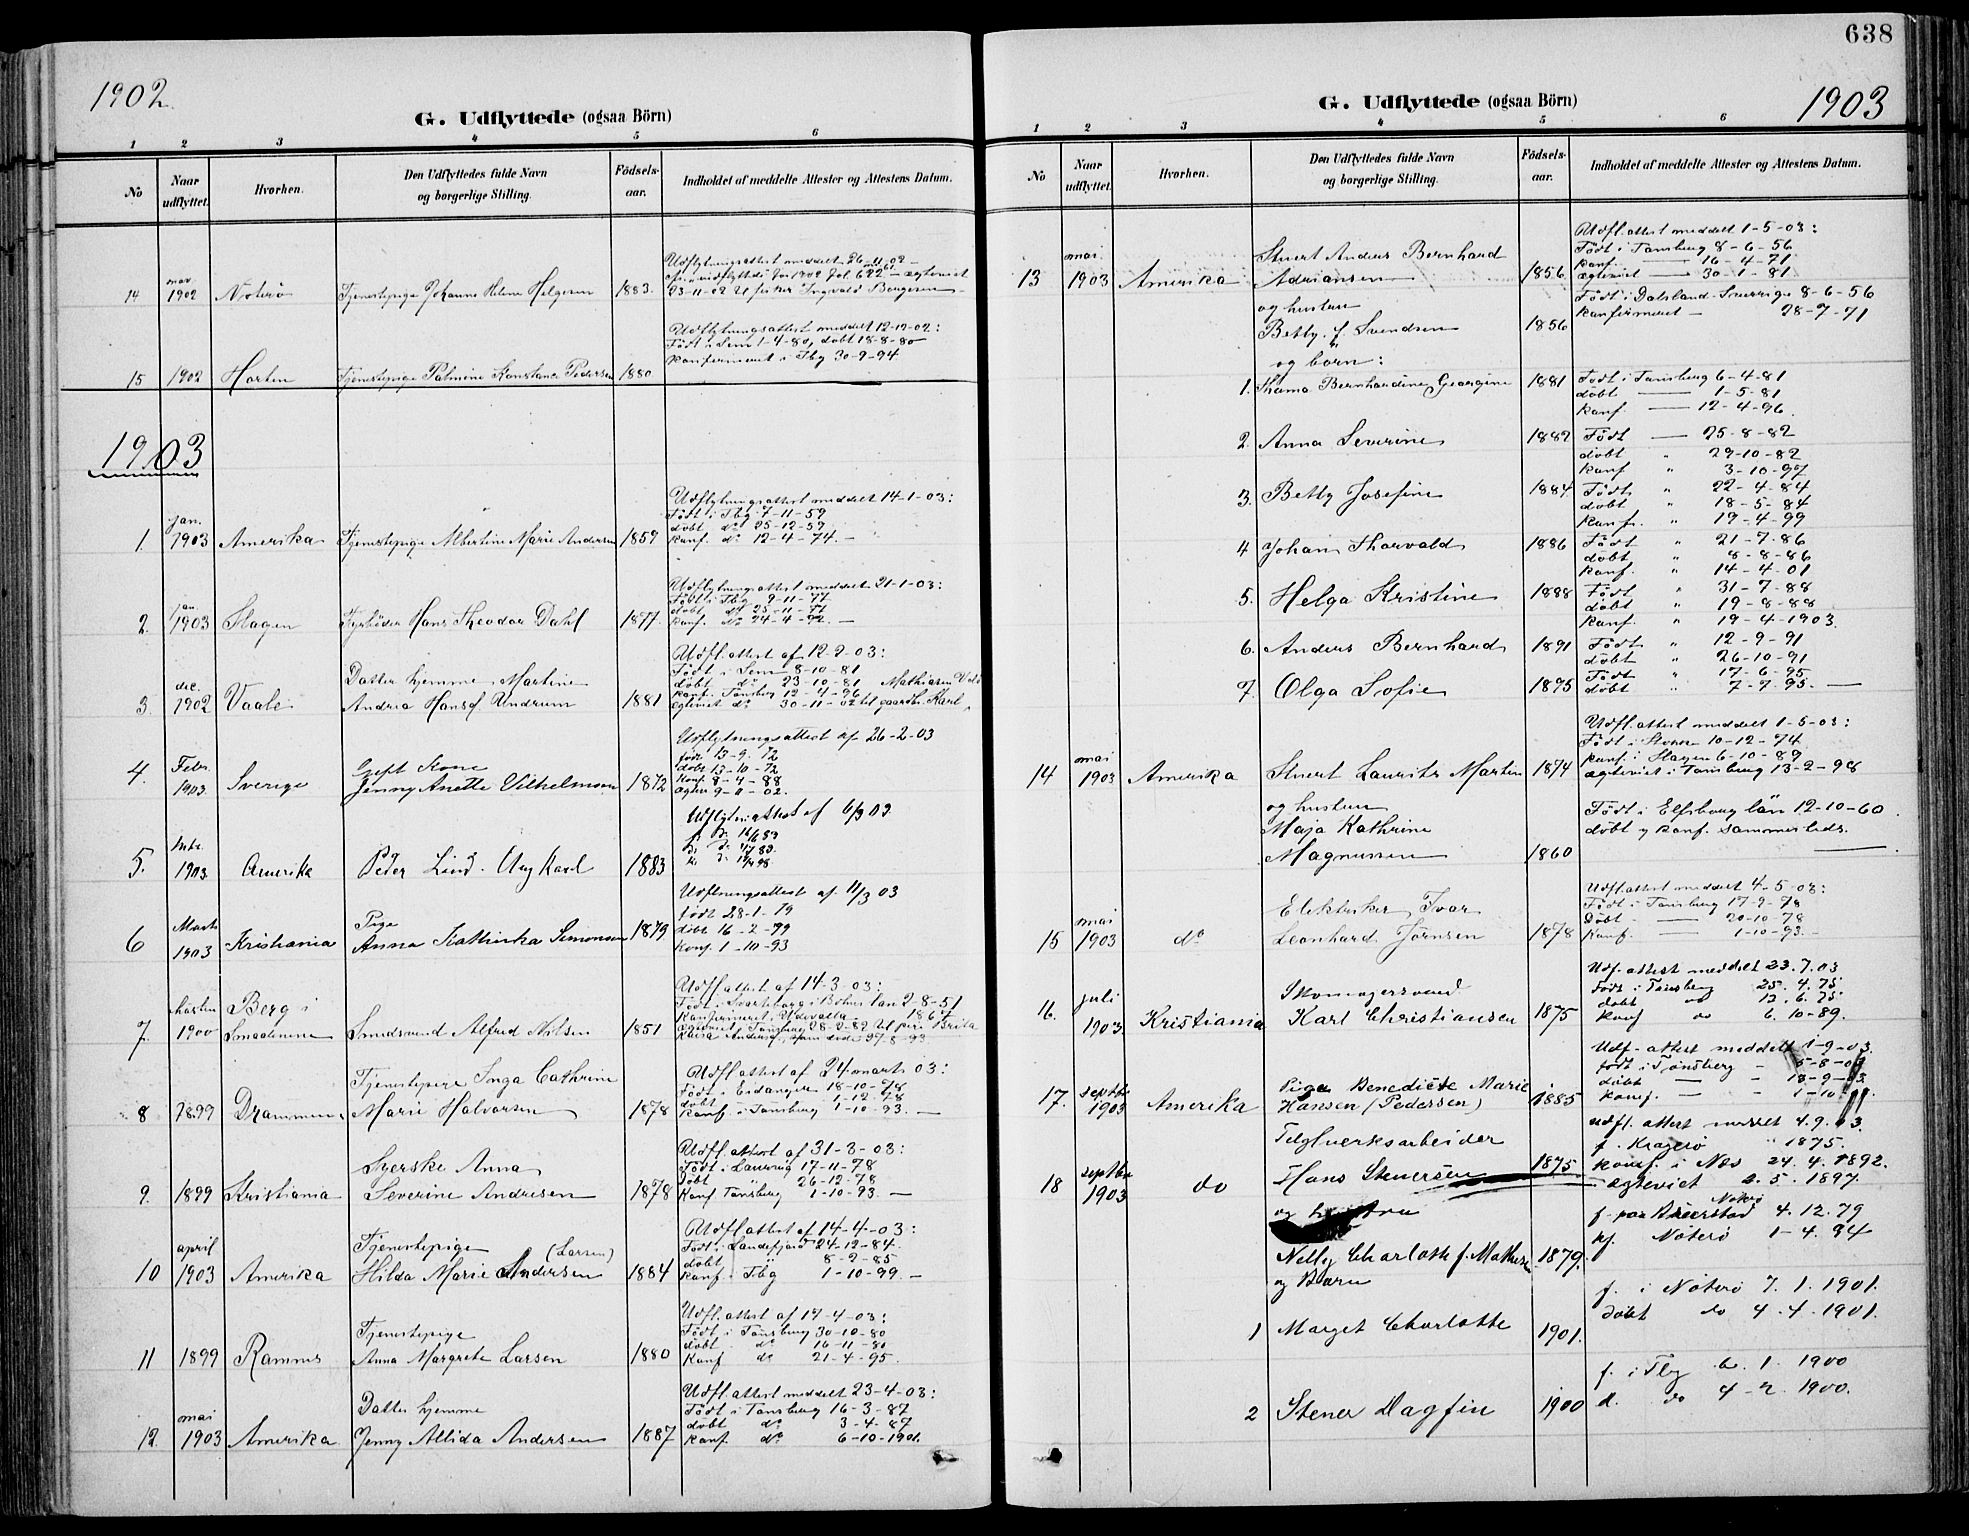 1902
G. Udflyttede (ogsaa Börn)
1 2 3 4 5 6
No
Naar udflyttet.
Hvorhen.
Den Udflyttedes fulde Navn og borgerlige Stilling.
Födsels-aar.
Indholdet af meddelte Attester og Attestens Datum.
Udflytningsattest meddelt 26-11-02
14 1902 Nøterø Tjenestepige Johanne Helene Helgesen 1883.
23-11-02 til fisker Ingvald Borgersen
Udflytningsattest meddelt 12-12-02:
Født i Sem 1-4-80, døbt 18-8-80
Konfirmeret i Tbg 30-9-94
15 1902 Horten Tjenestepige Palmine Konstance Pedersen 1880
1903
Udflytningsattest meddelt 14-1-03:
Født i Tbg 7-11-59
døbt do 25-12-59
konf. do 12-4-74.
1. jan. 1903 Amerika Tjenestepige Albertine Marie Andersen 1859
Udflytningsattest meddelt 21-1-03:
Født i Tbg 9-11-77
døbt do 25-11-77
konf. do 24-4-92.
2. jan. 1903 Slagen Fyrbøder Hans Theodor Dahl 1877.
Udfl. attest af 12-2-03:
Født i Sem 8-10-81
døbt do 23-10-81 Mathiasen Vold
konf. Tønsberg 12-4-96
ægteviet do 30-11-02 til gaardbr. Karl
3. dec. 1902 Vaale Datter hjemme Martine
Andrea Hansd. Undrum 1881
Udflytningsattest af 26-2-03
født 13-9-72
døbt 13-10-72
Konf. 8-4-88
4. Febr. 1903. Sverige Gift Kone
Jenny Anette Vilhelmsen 1872
5. 1903. Amerika Peder Lind. Ung Karl 1883
Udflytningsattest af 11/3 03
født 28-1-79
døbt 16-2-79
Konf. 1-10-93
6 Marts 1903 Kristiania Pige
Anna Kathinka Simonsen 1879
Udfl attest af 14-3-03:
Født i Svarteborg i Bohus län 2-8-51
Konfirmeret i Udevalla 1867
ægteviet i Tønsberg 28-2-82 til pige Brita
Kaisa Andersd., som døde 27-8-93
7. høsten 1900 Berg i
Smaalenene Smedsvend Alfred Nilsen 1851
Udfl attest af 24 marts 03:
Født i Eidanger 18-10-78
døbt 1-12-78
Konf. i Tønsberg 1-10-93.
8 1899 Drammen Tjenestepige Inga Cathrine
Marie Halvorsen 1878
Udfl. attest af 31-3-03:
Født i Laurvig 17-11-78
Døbt 26-12-78
Konf. Tønsberg 1-10-93.
9. 1899 Kristiania Syerske Anna
Severine Andresen 1878
Udfl attest af 14-4-03:
Født i Sandefjord 24-12-84
døbt 8-2-85
konf. i Tbg 1-10-99.
10 april 1903 Amerika Tjenestepige (Larsen)
Hilda Marie Andersen 1884
Udfl. attest af 17-4-03:
Født i Tønsberg 30-10-80
døbt do 16-11-80
Konf do 21-4-95.
11 1899 Ramnes Tjenestepige
Anna Margrete Larsen 1880
Udfl. attest meddelt 23-4-03:
Født i Tønsberg 16-3-87
døbt do 3-4-87
konf. do 6-10-1901.
12. mai 1903 Amerika Datter hjemme
Jenny Allida Andersen 1887
638
G. Udflyttede (ogsaa Börn)
1903
1 2 3 4 5 6
No
Naar udflyttet.
Hvorhen.
Den Udflyttedes fulde Navn og borgerlige Stilling.
Födsels-aar.
Indholdet af meddelte Attester og Attestens Datum.
Udfl. attest meddelt 1-5-03:
Født i Tønsberg 8-6-56
konf. 16-4-71
ægteviet 30-1-81
13 mai 1903 Amerika Stuert Anders Bernhard
Adriansen 1856
og hustru
Betty f. Svendsen 1856
Født i Dalsland Sverrige 8-6-56
Konfirmeret 28-7-71
og børn:
1. Thama Bernhardine Georgine 1881 Født i Tønsberg 6-4-81
døbt 1-5-81
konf. 12-4-96.
2. Anna Severine 1882 Født 25-8-82
døbt " 29-10-82
konf " 3-10-97
3. Betty Josefine 1884 Født " 22-4-84
døbt " 18-5-84
konf. " 19-4-99
4 Johan Thorvald 1886 Født " 21-7-86
døbt " 8-8-86
konf. " 14-4-01
5. Helga Kristine 1888 Født " 31-7-88
døbt " 19-8-88
Konf. " 19-4-1903.
6. Anders Bernhard 1891 Født " 12-9-91
døbt " 26-10-91
7. Olga Sofie 1895 Født " 17-6-95
døbt " 7-7-95.
Udfl. attest meddelt 1-5-03:
Født i Stokke 10-12-74
konf. i Slagen 6-10-89
ægteviet i Tønsberg 13-2-98
14 mai 1903 Amerika Stuert Laurits Martin 1874
og hustru
Maja Kathrine
Magnussen 1860
Født i Elfsborg län 12-10-60
døbt og konf. sammesteds.
Udfl. attest meddelt 4-5-03:
Født i Tønsberg 17-9-78
Døbt 20-10-78
Konf. 1-10-93.
15 mai 1903 do Elektriker Ivar
Leonhard Jörnsen 1878
Udf. attest meddelt 23.7.03
født i Tønsberg 25.4.75
døbt do 12.6.75
konf do 6.10-89.
16. juli 1903. Kristiania Skomagersvend
Karl Christiansen 1875
Udf. attest meddelt 1-9-03.
født i Tønsberg
17. septbr 1903 Amerika Pige Benedicte Marie
Hansen (Pedersen) 1885
Udfl. attest meddelt 4.9.03.
f. Kragerø 1875.
konf. i Næs 24.4.1892.
ægteviet 2.5.1897.
18 septbr 1903 do Teglverksarbeider
Hans Stenersen 1875
og hustru
Nelly Charlotte f. Mathisen 1879.
4.12.79
kf. Nøterø 1-4.94
og Børn
1 Marget Charlotte 1901. f. i Nøterø 7.1.1901.
døbt do 4.4.1901.
2 Stener Dagfin 1900 f. i Tbg 6.1.1900
d. do 4-2.1900.